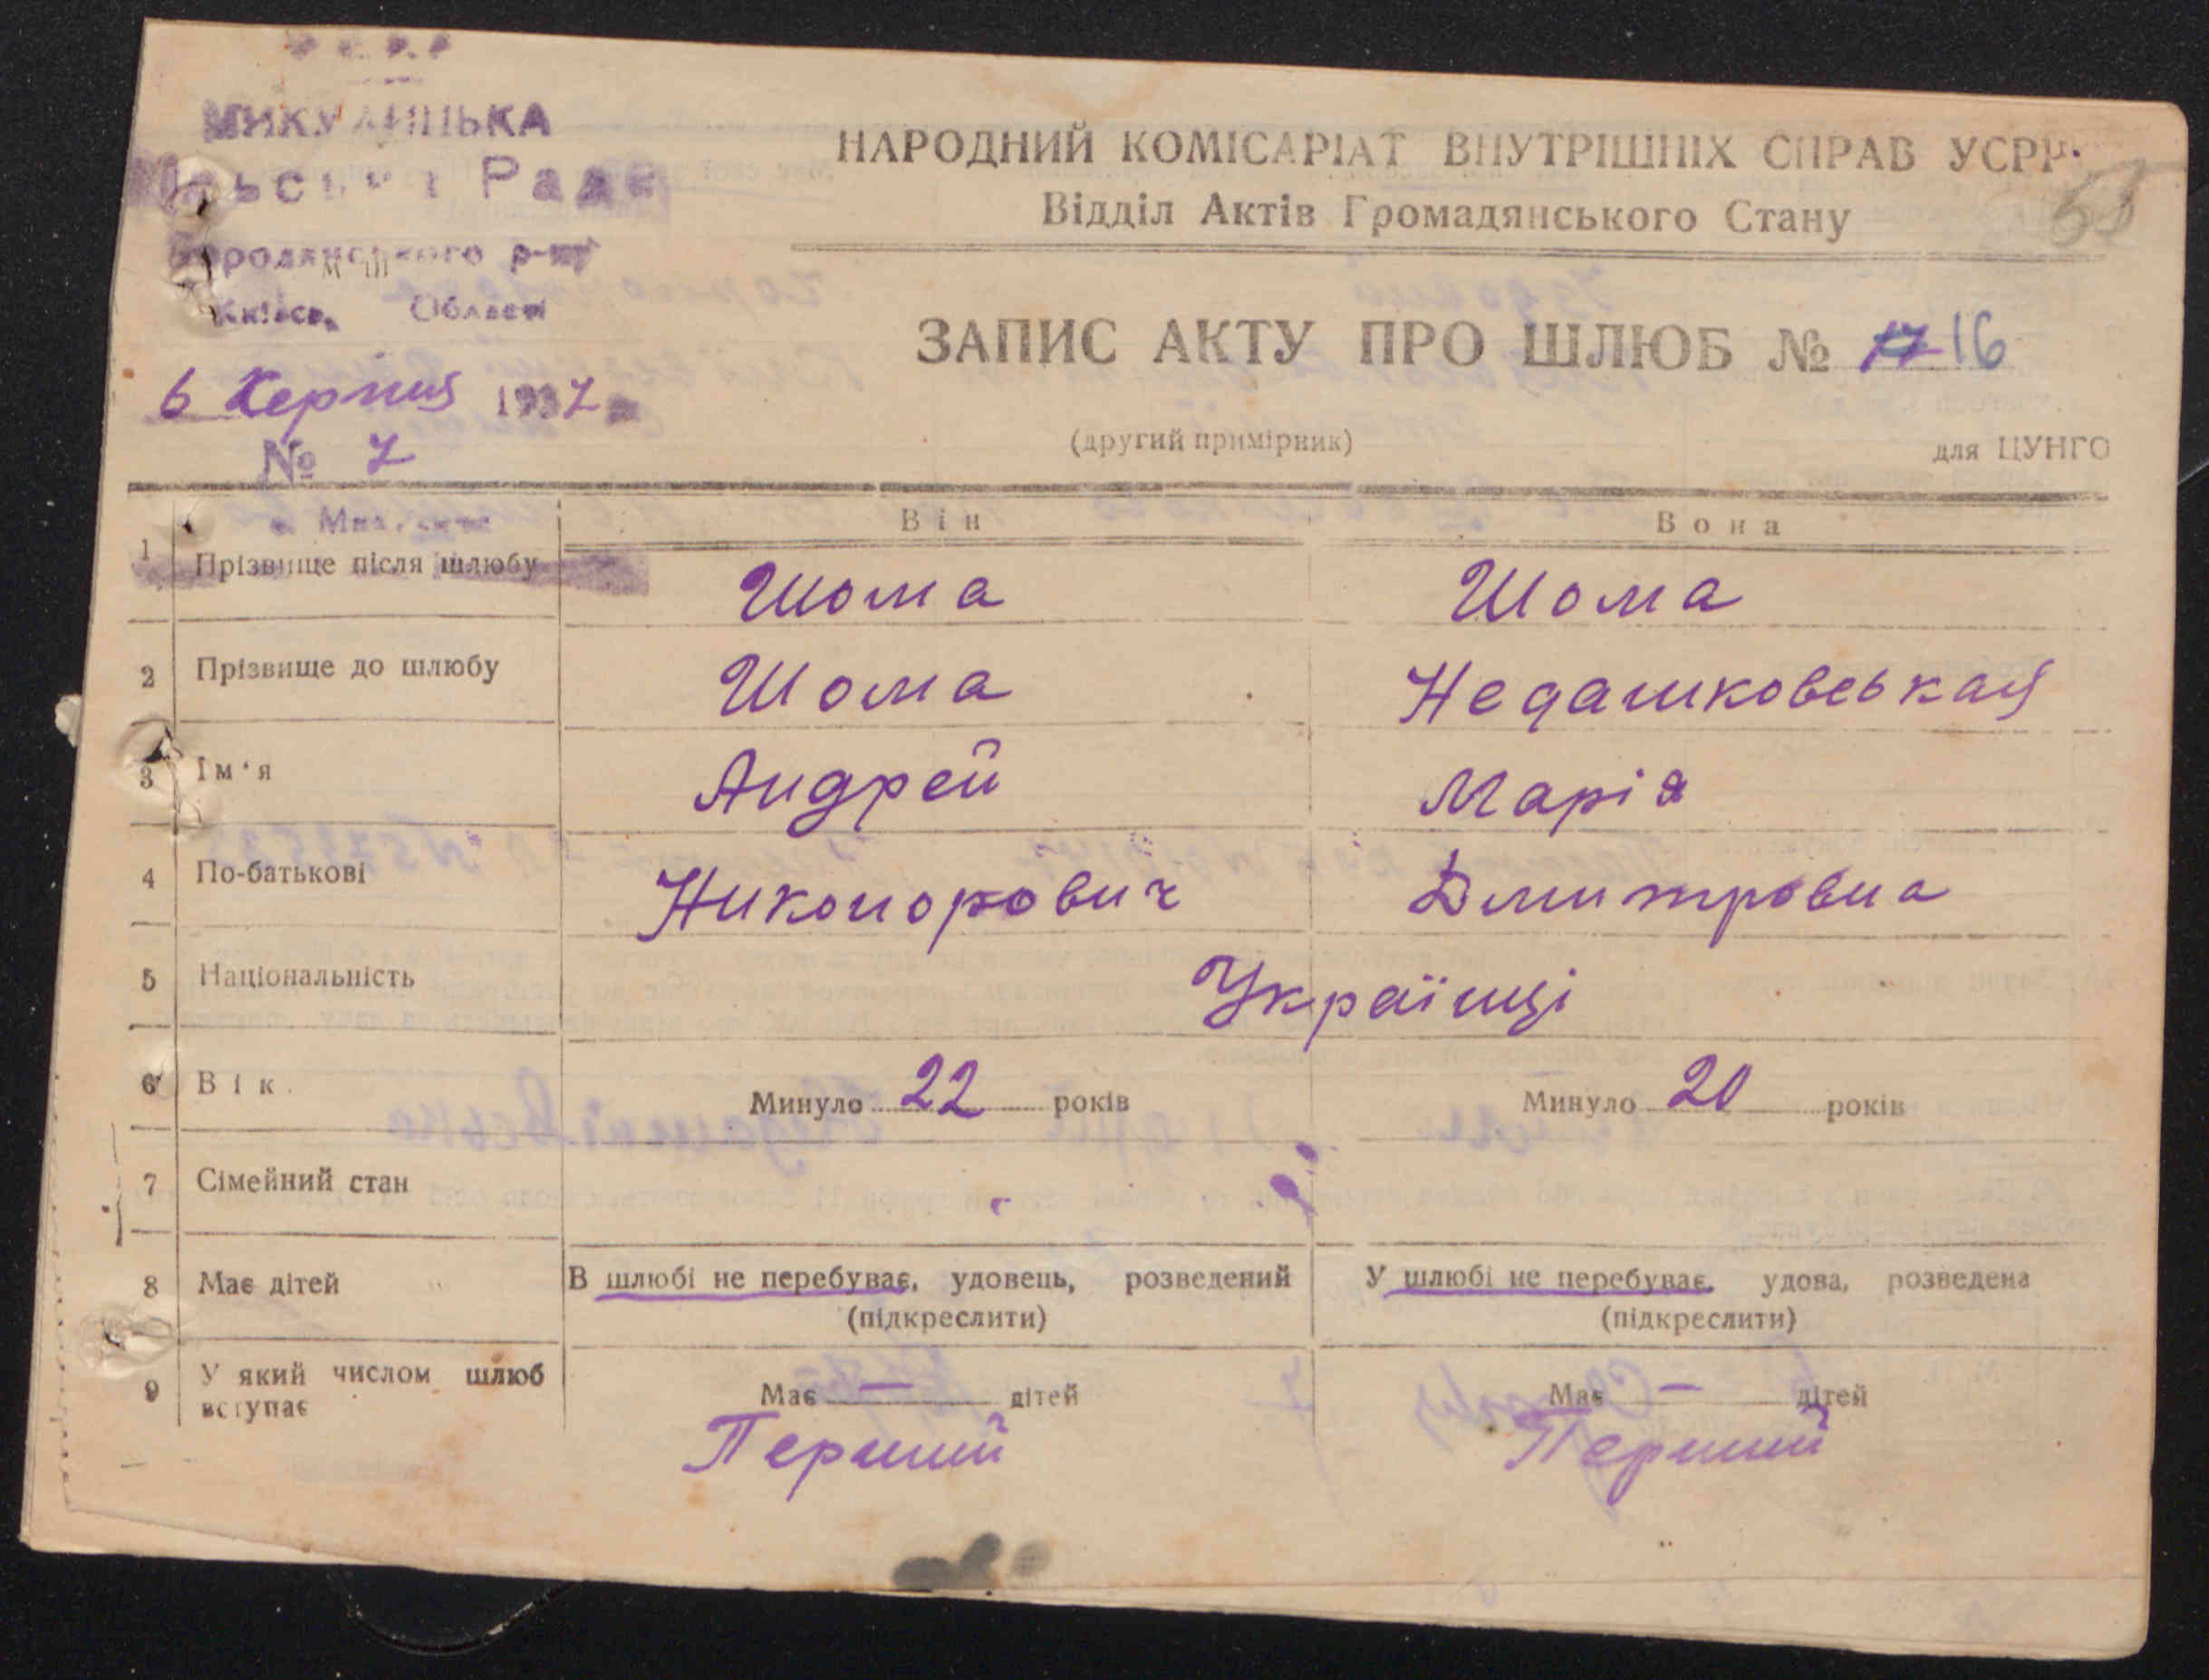 МИКУЛИЦЬКА
Рада
р-ну
Області
НАРОДНИЙ КОМІСАРІАТ ВНУТРІШНІХ СПРАВ УСРР.
Відділ Актів Громадянського Стану
ЗАПИС АКТУ ПРО ШЛЮБ № 17 16
6 Серпня 1937
№ 7
(другий примірник)
для ЦУНГО
Він Вона
1 Прізвище після шлюбу Шома Шома
2 Прізвище до шлюбу Шома Недашковськая
3 Ім'я Андрей Марія
4 По-батькові Никонорович Дмитровна
5 Національність Українці
6 Вік. Минуло 22 років Минуло 20 років
7 Сімейний стан
8 Має дітей В шлюбі не перебуває, удовець, розведений У шлюбі не перебуває, удова, розведена
(підкреслити) (підкреслити)
9 У який числом шлюб вступає Має — дітей Має — дітей
Перший Перший